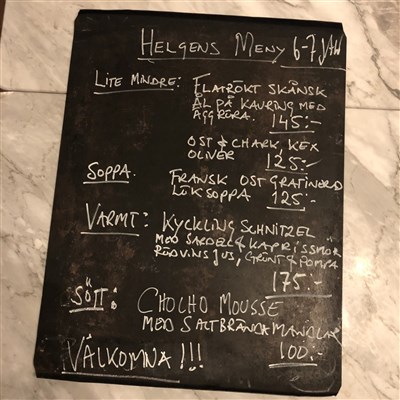 HELGENS MENY 6-7 JAN
LITE MINDRE: FLATRÖKT SKÅNSK
ÅL PÅ KAVRING MED
ÄGGRÖRA. 145:-
OST & CHARK, KEX
OLIVER 125:-
SOPPA. FRANSK OSTGRATINERD
LÖKSOPPA 125:-
VARMT: KYCKLINGSCHNITZEL
MED SARDELL & KAPRISSMÖR
RÖDVINSJUS, GRÖNT & POMPA
175:-
SÖTT: CHOCHO MOUSSE
MED SALTBRÄNDA MANDLAR
100:-
VÄLKOMNA!!!